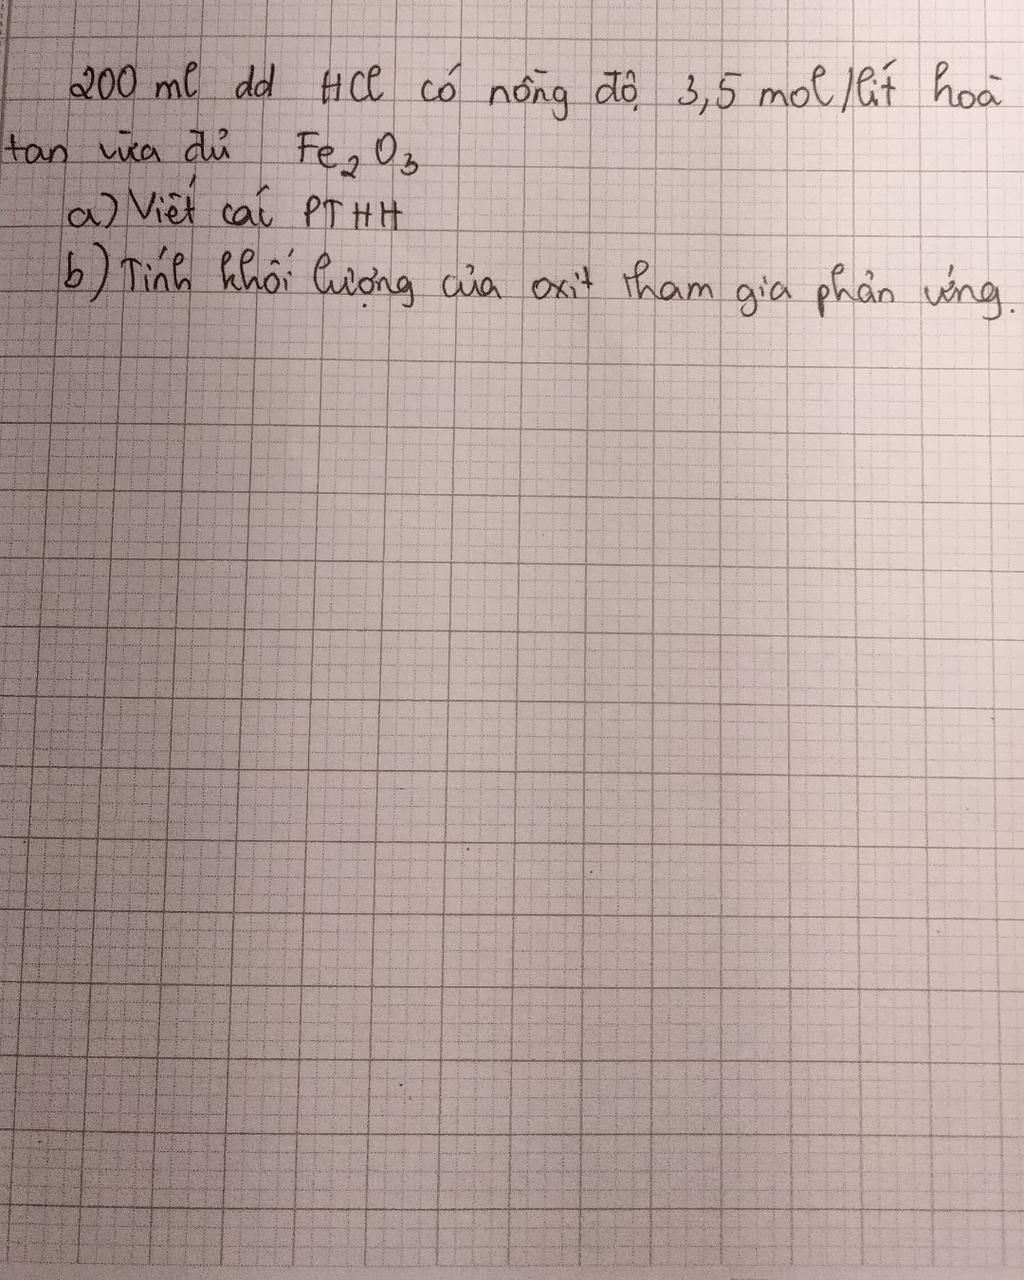 200 ml dd HCl có nồng độ 3,5 mol/lít hoà
tan vừa đủ Fe₂O₃
a) Viết các PTHH
b) Tính khối lượng của oxit tham gia phản ứng.